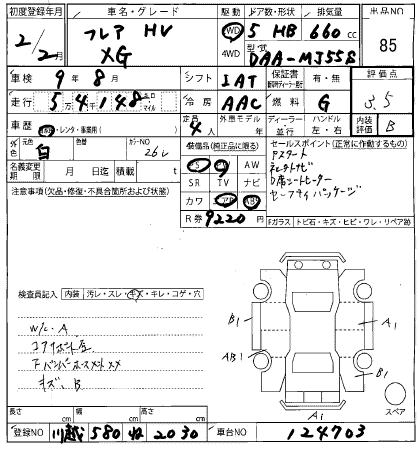 初度登録年月 車名・グレード 駆動 ドア数・形状 排気量 出品NO
2/2月 フレア HV XG 2WD 4WD 5 HB 660cc 85
型式 DAA-MJ55S
車検 9年8月 シフト IAT 保証書 有・無 評価点
走行 5万4千148 マイル 冷房 AAC 燃料 G 3.5
車歴 レンタ・事業用( ) 定員 4人 外車モデル年 ディーラー 並行 ハンドル 左・右 内装評価 B
外色 白 元色 色替 カラーNO 26U 装備品(純正品に限る) セールスポイント(正常に作動するもの)
名義変更期限 月 日迄 積載 t PS PW AW
Pスタート
注意事項(欠品・修復・不具合箇所および状態) SR TV ナビ
D席シートヒーター
カワ エアB ABS
セーフティパッケージ
R券 9220円
Fガラス トビ石・キズ・ヒビ・ワレ・リペア跡
検査員記入 内装 汚レ・スレ・キズ・キレ・コゲ・穴
W/C・A
キズ B
B1 A1
AB1 B1
A1
スペア
長さ cm 幅 cm 高さ cm
登録NO 川越 580 ね 2030 車台NO 124703